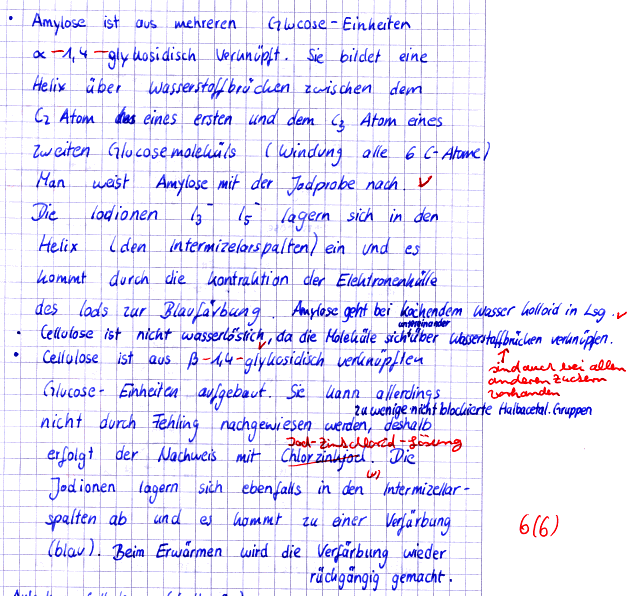 • Amylose ist aus mehreren Glucose-Einheiten
α-1,4-glykosidisch verknüpft. Sie bildet eine
Helix über Wasserstoffbrücken zwischen dem
C2 Atom des eines ersten und dem C3 Atom eines
zweiten Glucosemoleküls (Windung alle 6 C-Atome)
Man weist Amylose mit der Jodprobe nach. ✓
Die Iodionen I3⁻ I5⁻ lagern sich in den
Helix (den Intermizelarspalten) ein und es
kommt durch die Kontraktion der Elektronenhülle
des Iods zur Blaufärbung. Amylose geht bei kochendem Wasser kolloid in Lsg. ✓
untereinander
• Cellulose ist nicht wasserlöslich, da die Moleküle sich über Wasserstoffbrücken verknüpfen.
• Cellulose ist aus β-1,4-glykosidisch verknüpften
sind auch bei allen
anderen Zuckern
vorhanden
Glucose-Einheiten aufgebaut. Sie kann allerdings
zu wenige nicht blockierte Halbacetal-Gruppen
nicht durch Fehling nachgewiesen werden, deshalb
Iod-Zinkchlorid-Lösung
erfolgt der Nachweis mit Chlorzinkjod. Die
Jodionen lagern sich ebenfalls in den Intermizellar-
spalten ab und es kommt zu einer Verfärbung
6(6)
(blau). Beim Erwärmen wird die Verfärbung wieder
rückgängig gemacht.